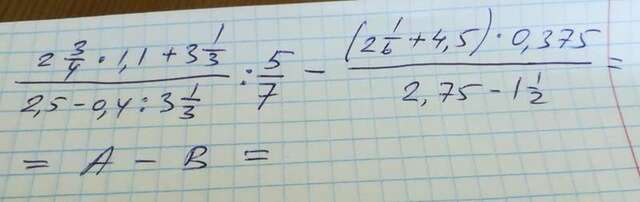 (2 3/4 · 1,1 + 3 1/3) / (2,5 - 0,4 : 3 1/3) : 5/7 - ((2 1/6 + 4,5) · 0,375) / (2,75 - 1 1/2) =
= A - B =